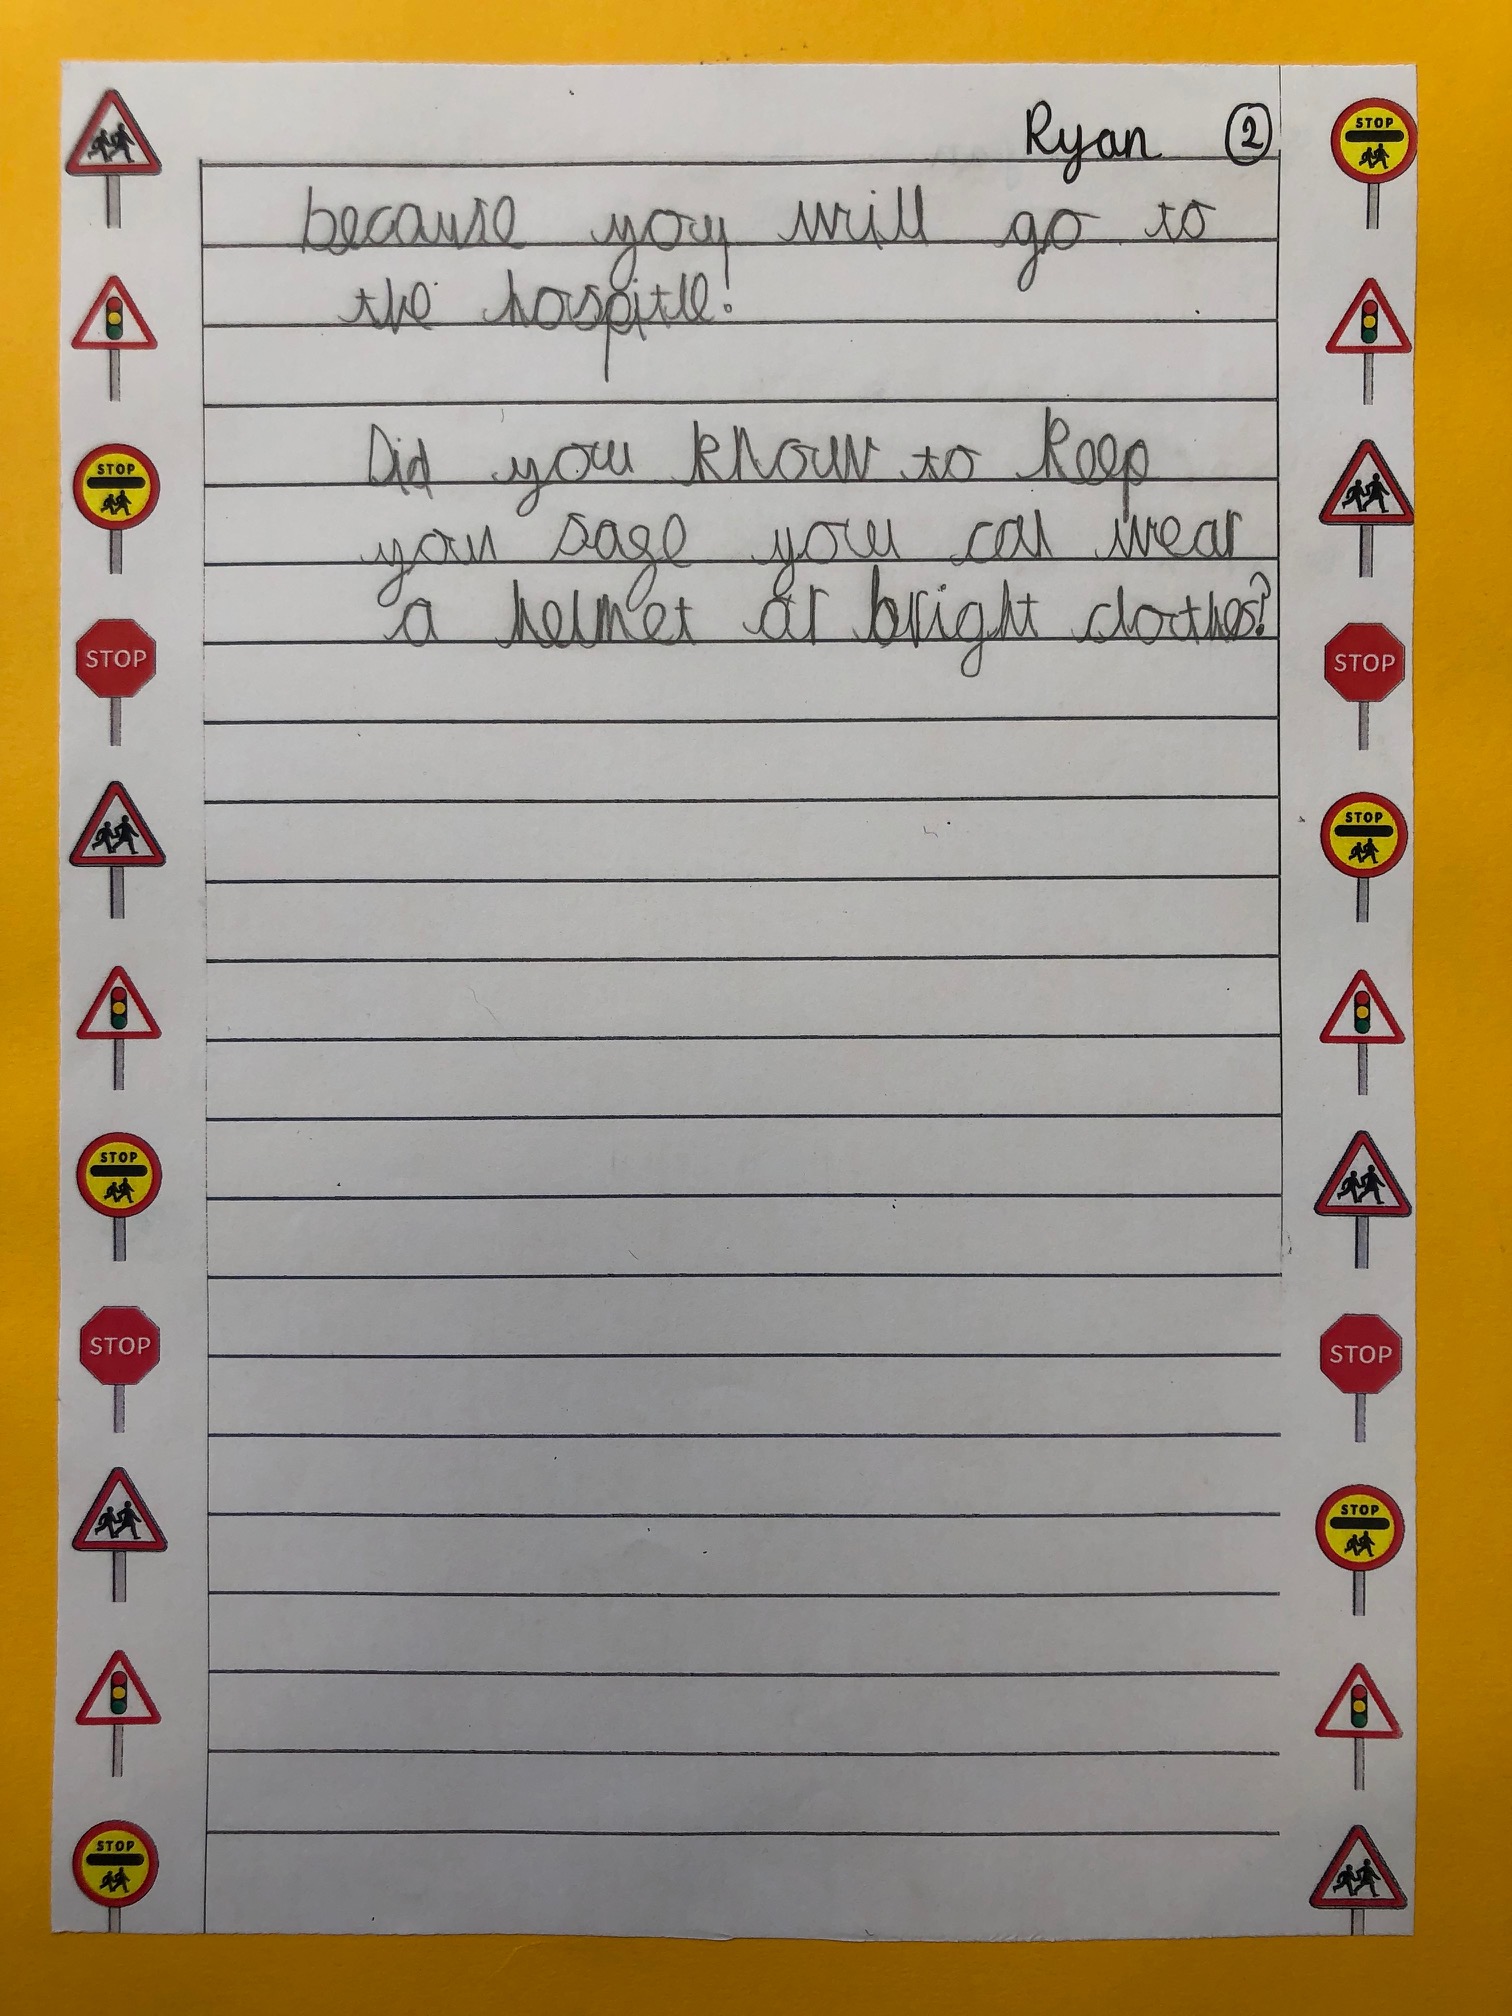 Ryan 2
because you will go to
the hospitle!
Did you know to keep
your sage you can wear
a helmet or bright clothes?
STOP
STOP
STOP
STOP
STOP
STOP
STOP
STOP
STOP
STOP